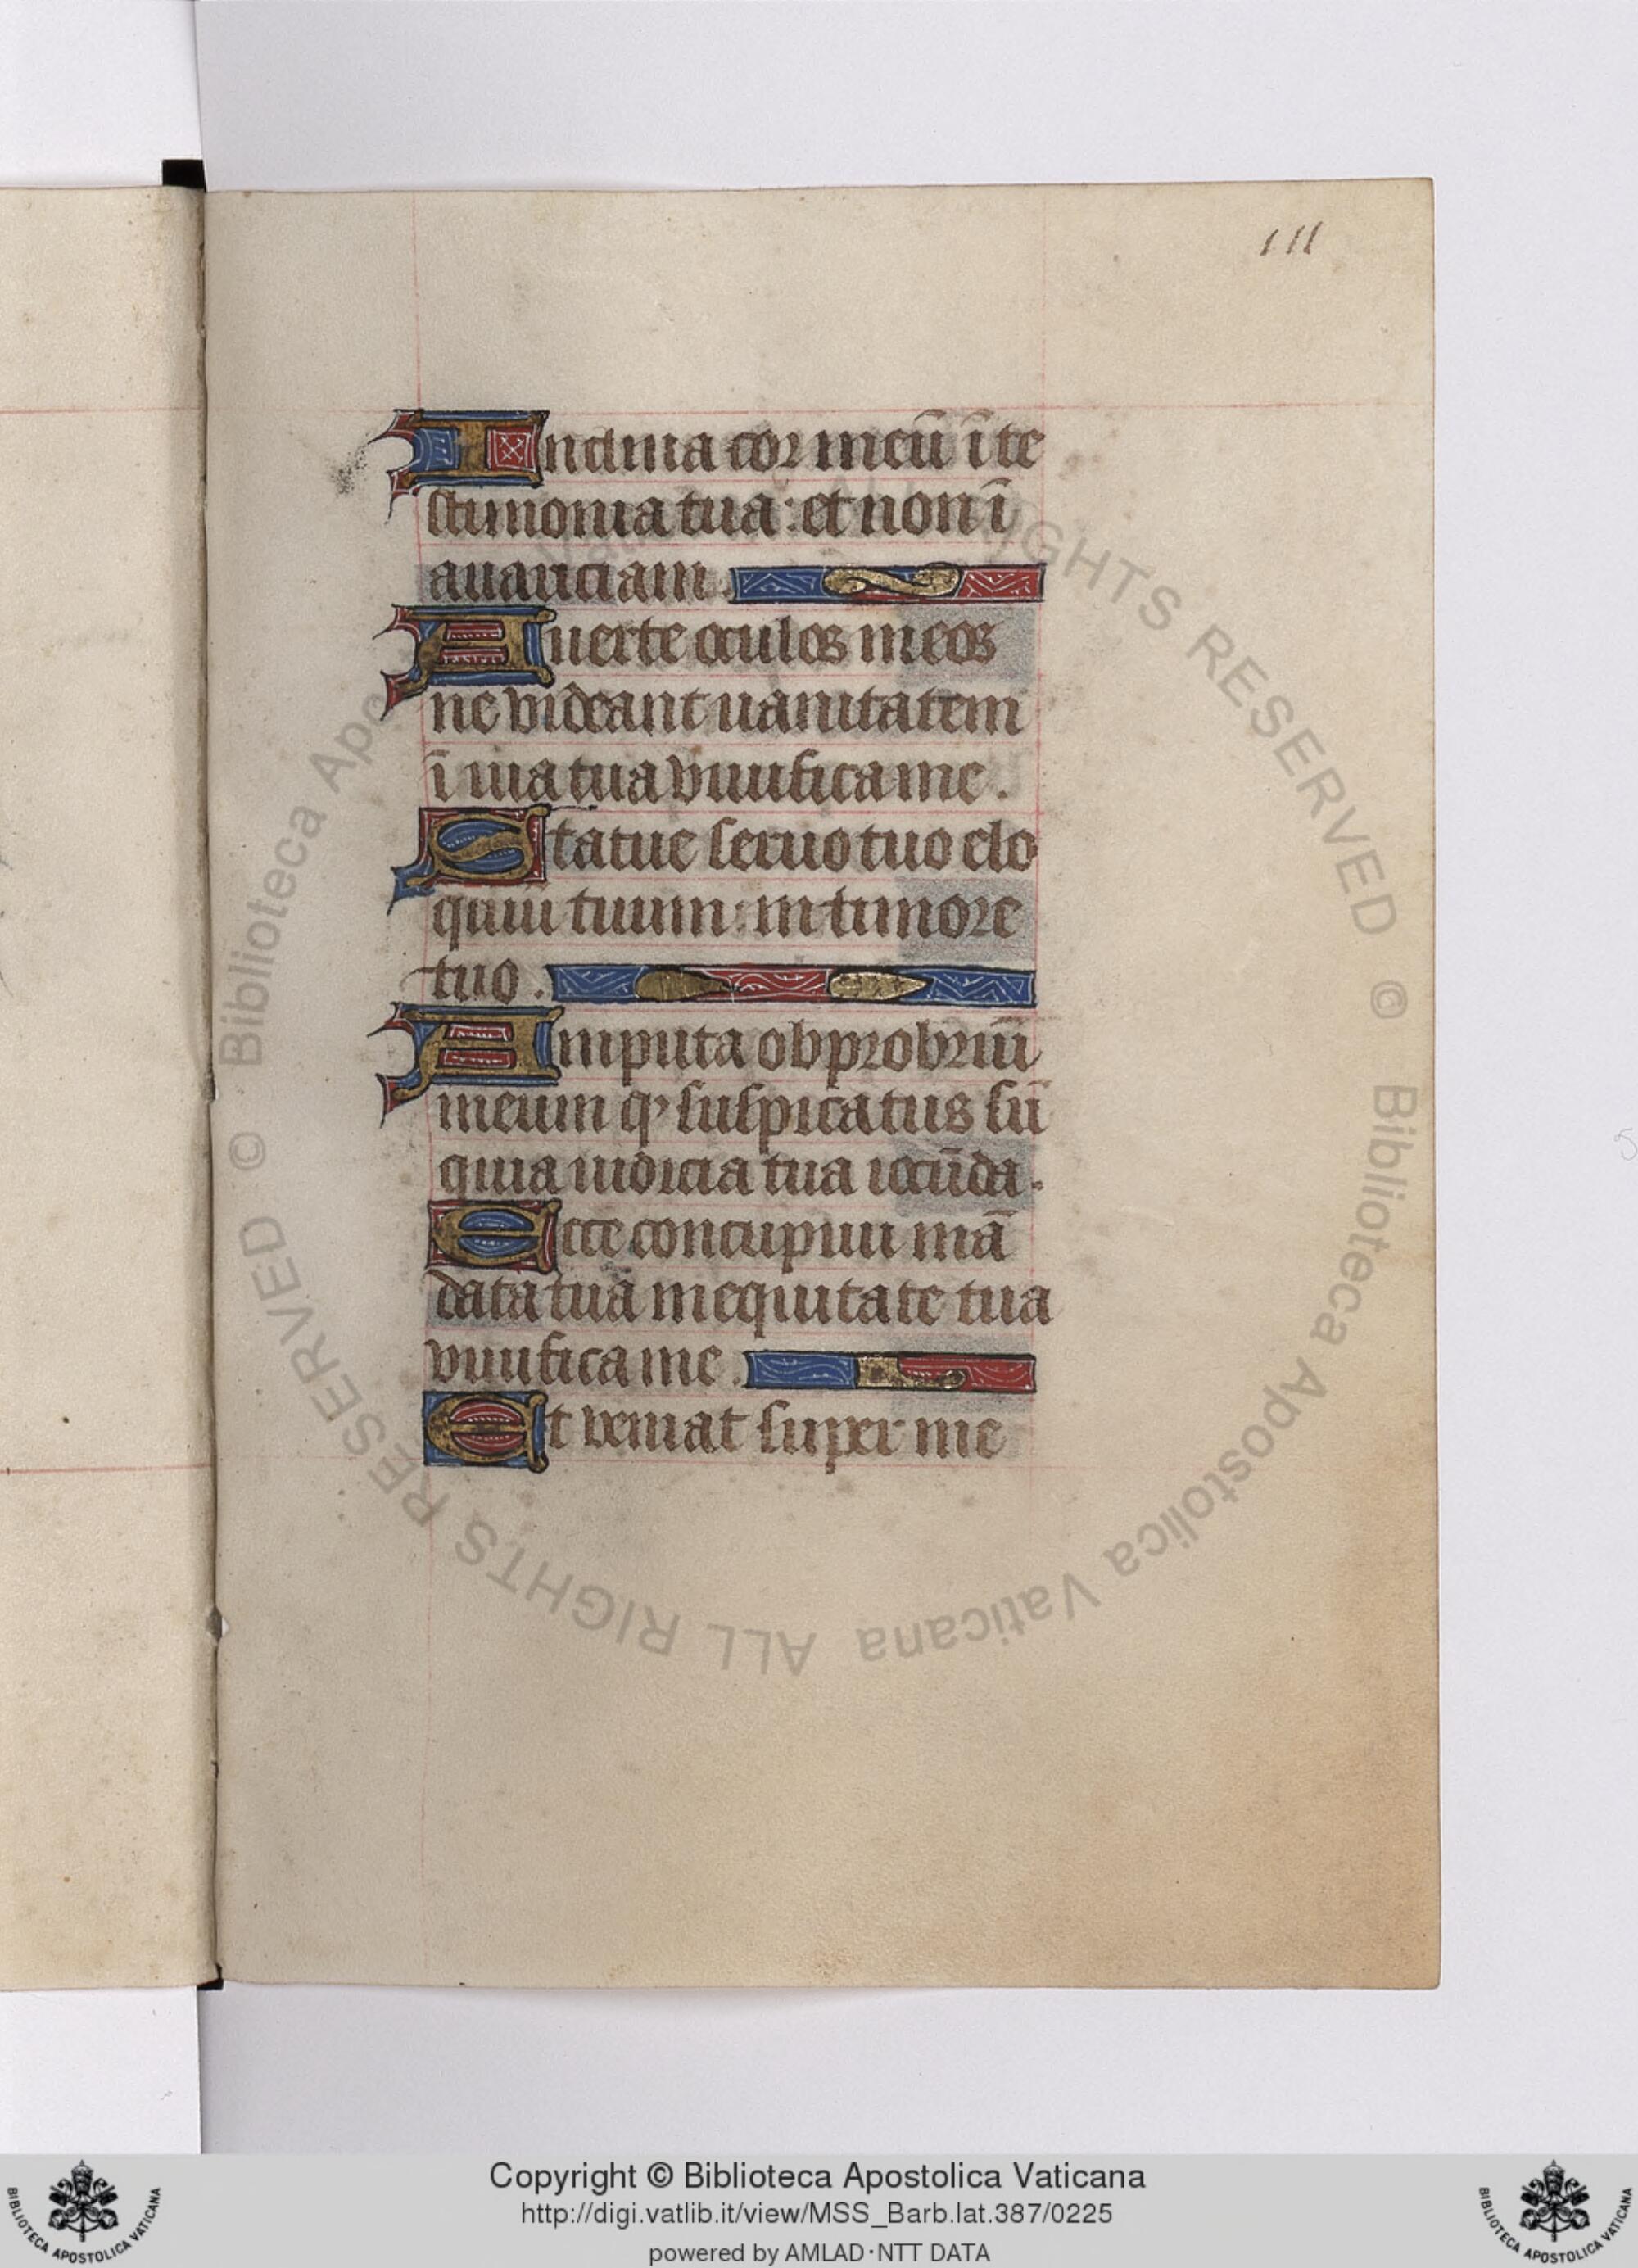 111
Inclina cor meū ī te
stimonia tua: et non ī
auariciam.
Auerte oculos meos
ne videant uanitatem
ī uia tua viuifica me.
Statue seruo tuo elo
quiū tuum: in timore
tuo.
Amputa obprobriū
meum qͥ suspicatus sū
quia iudicia tua iocūda.
Ecce concupiui mā
data tua in equitate tua
viuifica me.
Et veniat super me
© Biblioteca Apostolica Vaticana ALL RIGHTS RESERVED © Biblioteca Apostolica Vaticana ALL RIGHTS RESERVED
Copyright © Biblioteca Apostolica Vaticana
http://digi.vatlib.it/view/MSS_Barb.lat.387/0225
powered by AMLAD·NTT DATA
BIBLIOTECA APOSTOLICA VATICANA
BIBLIOTECA APOSTOLICA VATICANA